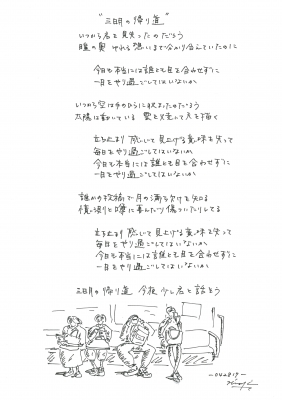 "三日月の帰り道"
いつから君を見失ったのだろう
瞳の奥 ゆれる想いまで分かり合えていたのに
今日も本当には誰とも目を合わせずに
一日をやり過ごしてはいないか
いつから空は手のひらに収まったのだろう
太陽は動いている 雲を従えて人を描く
立ち止まり 感じて見上げる意味を失って
毎日をやり過ごしてはいないか
今日も本当には誰とも目を合わせずに
一日をやり過ごしてはいないか
誰かの投稿で月の満ち欠けを知る
憤りと噂に
傷ついたりしてる
立ち止まり 感じて見上げる意味を失って
毎日をやり過ごしてはいないか
今日も本当には誰とも目を合わせずに
一日をやり過ごしてはいないか
三日月の帰り道 今夜 少し君と話そう